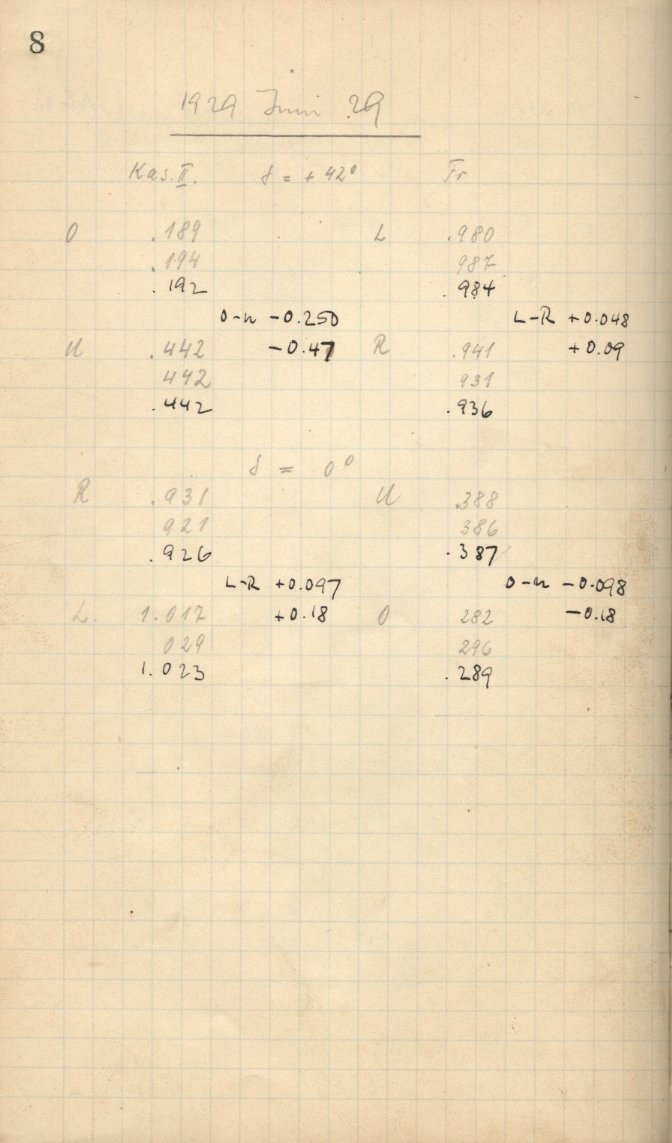 8
1929 Juni 29
Kas. II. δ = + 42° Fr
O .189 L .980
.194 987
.192 .984
O-u -0.250 L-R +0.048
U .442 -0.47 R .941 +0.09
442 931
.442 .936
δ = 0°
R .931 U .388
921 386
.926 .387
L-R +0.097 O-u -0.098
L. 1.017 +0.18 O 282 -0.18
029 296
1.023 .289